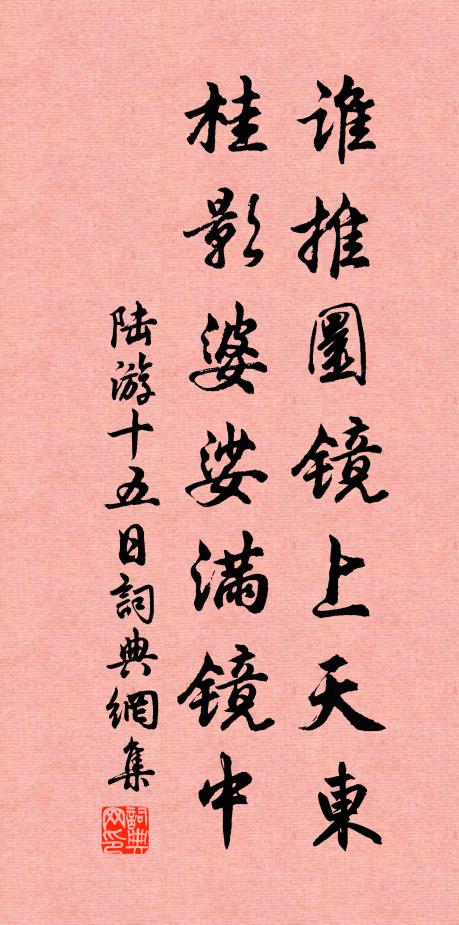 谁推圆镜上天東
桂影婆娑满镜中
陆游十五日詞典網集
詞典网印